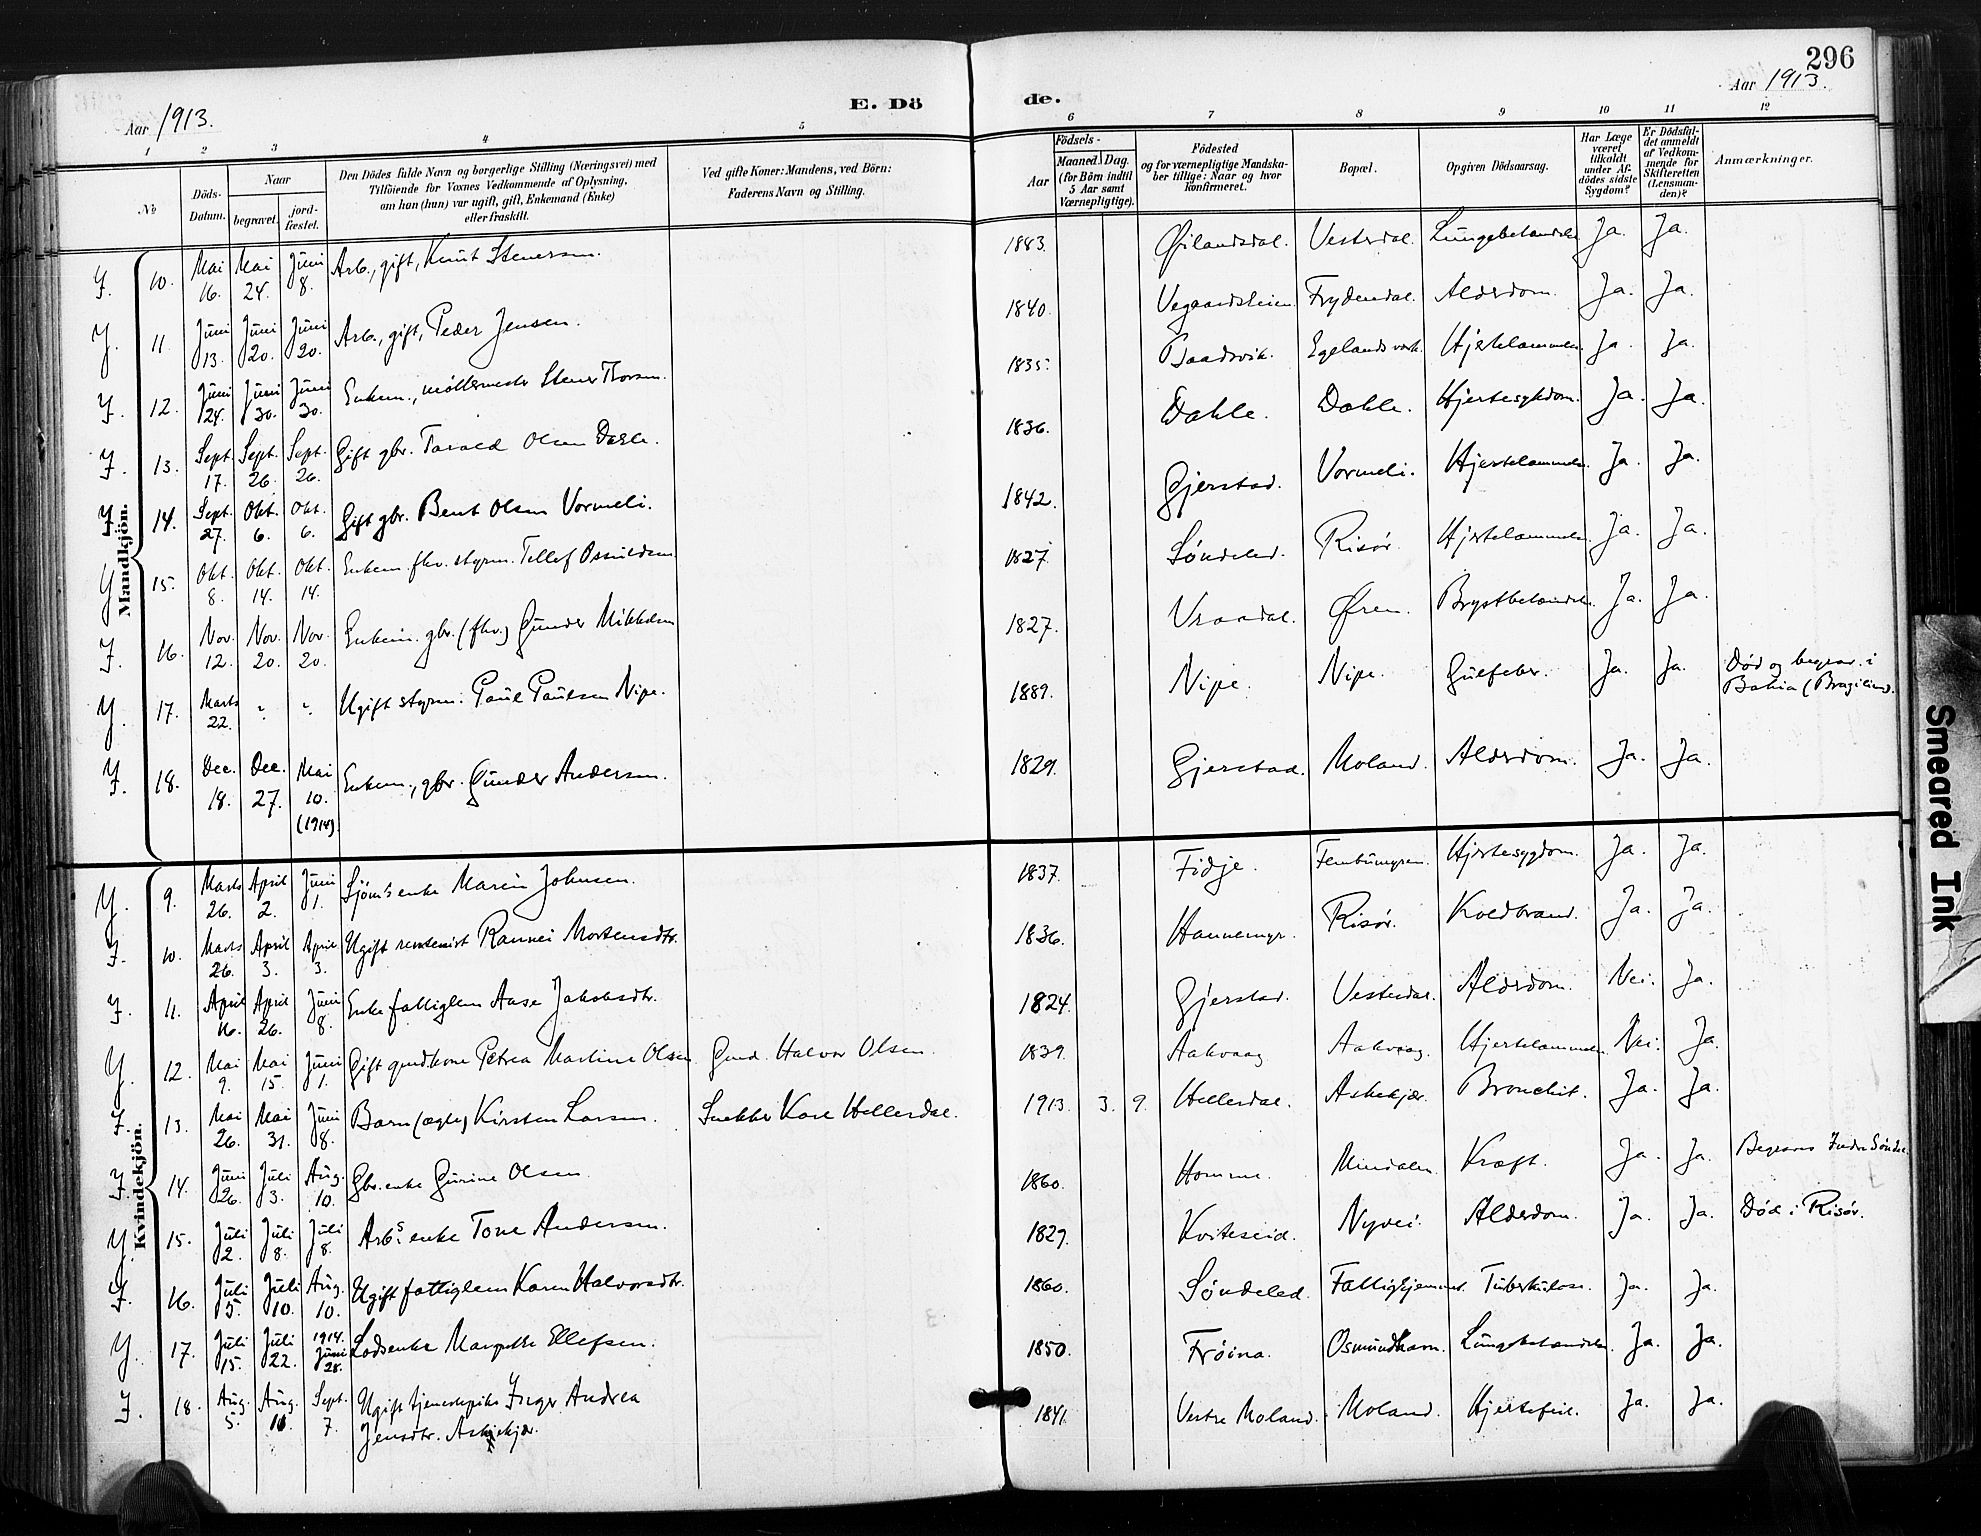 296
Aar 1913.
E. Dö
de.
Aar 1913.
1 2 3 4 5 6 7 8 9 10 11 12
№
Döds-Datum.
Naar
begravet.
jord-fæstet.
Den Dödes fulde Navn og borgerlige Stilling (Næringsvei) med
Tilföiende for Voxnes Vedkommende af Oplysning,
om han (hun) var ugift, gift, Enkemand (Enke)
eller fraskilt.
Ved gifte Koner: Mandens, ved Börn:
Faderens Navn og Stilling.
Födsels-
Aar
Maaned. Dag.
(for Börn indtil
5 Aar samt
Værnepligtige).
Födested
og for værnepligtige Mandska-
ber tillige: Naar og hvor
konfirmeret.
Bopæl.
Opgiven Dödsaarsag.
Har Læge
været
tilkaldt
under Af-
dödes sidste
Sygdom?
Er Dödsfal-
det anmeldt
af Vedkom-
mende for
Skifteretten
(Lensman-
den)?
Anmærkninger.
Mandkjön.
10. Mai 16. Mai 24. Juni 8. Arb., gift, Knut Stenersen. 1843. Øilandsdal. Vesterdal. Lungebetændelse Ja. Ja.
11. Juni 13. Juni 20. Juni 20. Arb., gift, Peder Jensen. 1840. Vegaardsheien. Frydendal. Alderdom. Ja. Ja.
12. Juni 24. Juni 30. Juni 30. Enkem., møllemester Stener Thorsen. 1835. Baadsvik. Egelands verk. Hjertelammelse. Ja. Ja.
13. Sept. 17. Sept. 26. Sept. 26. Gift gbr. Tarald Olsen Dahle. 1836. Dahle. Dahle. Hjertesygdom. Ja. Ja.
14. Sept. 27. Okt. 6. Okt. 6. Gift gbr. Bent Olsen Vormeli. 1842. Gjerstad. Vormeli. Hjertelammelse. Ja. Ja.
15. Okt. 8. Okt. 14. Okt. 14. Enkem. fhv. styrm. Tellef Osuldsen 1827. Søndeled. Risør. Hjertelammelse. Ja. Ja.
16. Nov. 12. Nov. 20. Nov. 20. Enkem. gbr. (fhv.) Gunder Mikkelsen 1827. Vraadal. Øren. Brystbetændelse. Ja. Ja.
17. Marts 22. Ugift styrm. Paul Paulsen Nipe. 1889. Nipe. Nipe. Gulfeber. Ja. Ja. Død og begrav. i
Bahia (Brazilien).
18. Dec. 18. Dec. 27. Mai 10. (1914). Enkem., gbr. Gunder Andersen. 1829. Gjerstad. Moland. Alderdom. Ja. Ja.
Kvindekjön.
9. Marts 26. April 2. Juni 1. Sjøm.s enke Maren Johnsen. 1837. Fidje. Hjertesygdom. Ja. Ja.
10. Marts 26. April 3. April 3. Ugift rentenist Rannei Mortensdtr. 1836. Hannemyr. Risør. Koldbrand. Ja. Ja.
11. April 16. April 26. Juni 8. Enke fattiglem Aase Jakobsdtr. 1824. Gjerstad. Vesterdal. Alderdom. Nei. Ja.
12. Mai 9. Mai 15. Juni 1. Gift gmd.kone Petrea Martine Olsen Gmd. Halvor Olsen. 1839. Aakvaag Aakvaag. Hjertelammelse. Nei. Ja.
13. Mai 26. Mai 31. Juni 8. Barn (ægte) Kirsten Larsen. Snekker Kare Hellerdal. 1913. 3. 9. Hellerdal. Askekjær. Bronchit. Ja. Ja.
14. Juni 26. Juli 3. Aug. 10. Gbr.enke Gurine Olsen 1860. Homme. Mindalen. Kræft. Ja. Ja. Begraves Indre Søndel.
15. Juli 2. Juli 8. Juli 8. Arb.s enke Tone Andersen. 1829. Kviteseid. Nyvei. Alderdom. Ja. Ja. Død i Risør.
16. Juli 5. Juli 10. Aug. 10. Ugift fattiglem Karen Halvorsdtr. 1860. Søndeled. Fattighjemmet. Tuberkulose. Ja. Ja.
17. Juli 15. Juli 22. 1914. Juni 28. Lodsenke Margrethe Ellefsen. 1850. Frøina. Osmundhavn. Lungebetændelse. Ja. Ja.
18. Aug. 5. Aug. 10. Sept. 7. Ugift tjenestepike Inger Andrea
Jensdtr. Askekjær. 1841. Vestre Moland. Moland. Hjertefeil. Ja. Ja.
Smeared Ink